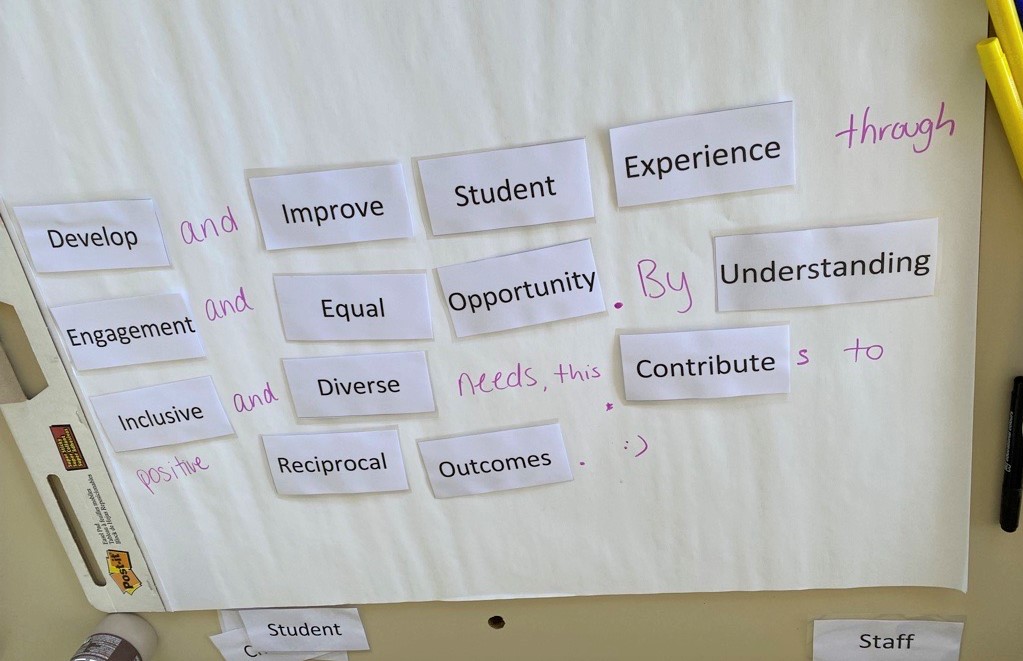 Develop and Improve Student Experience through
Engagement and Equal Opportunity. By Understanding
Inclusive and Diverse needs, this Contribute s to
positive Reciprocal Outcomes. :)
Post-it
Student
Staff